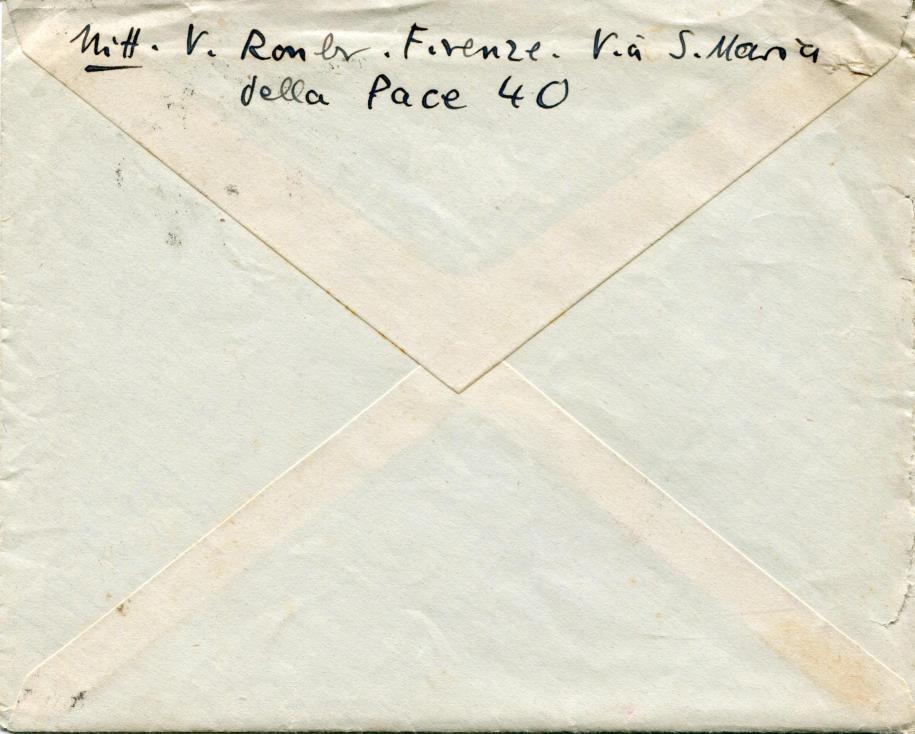 Mitt. V. Ronbr. Firenze. Via S. Maria
della Pace 40